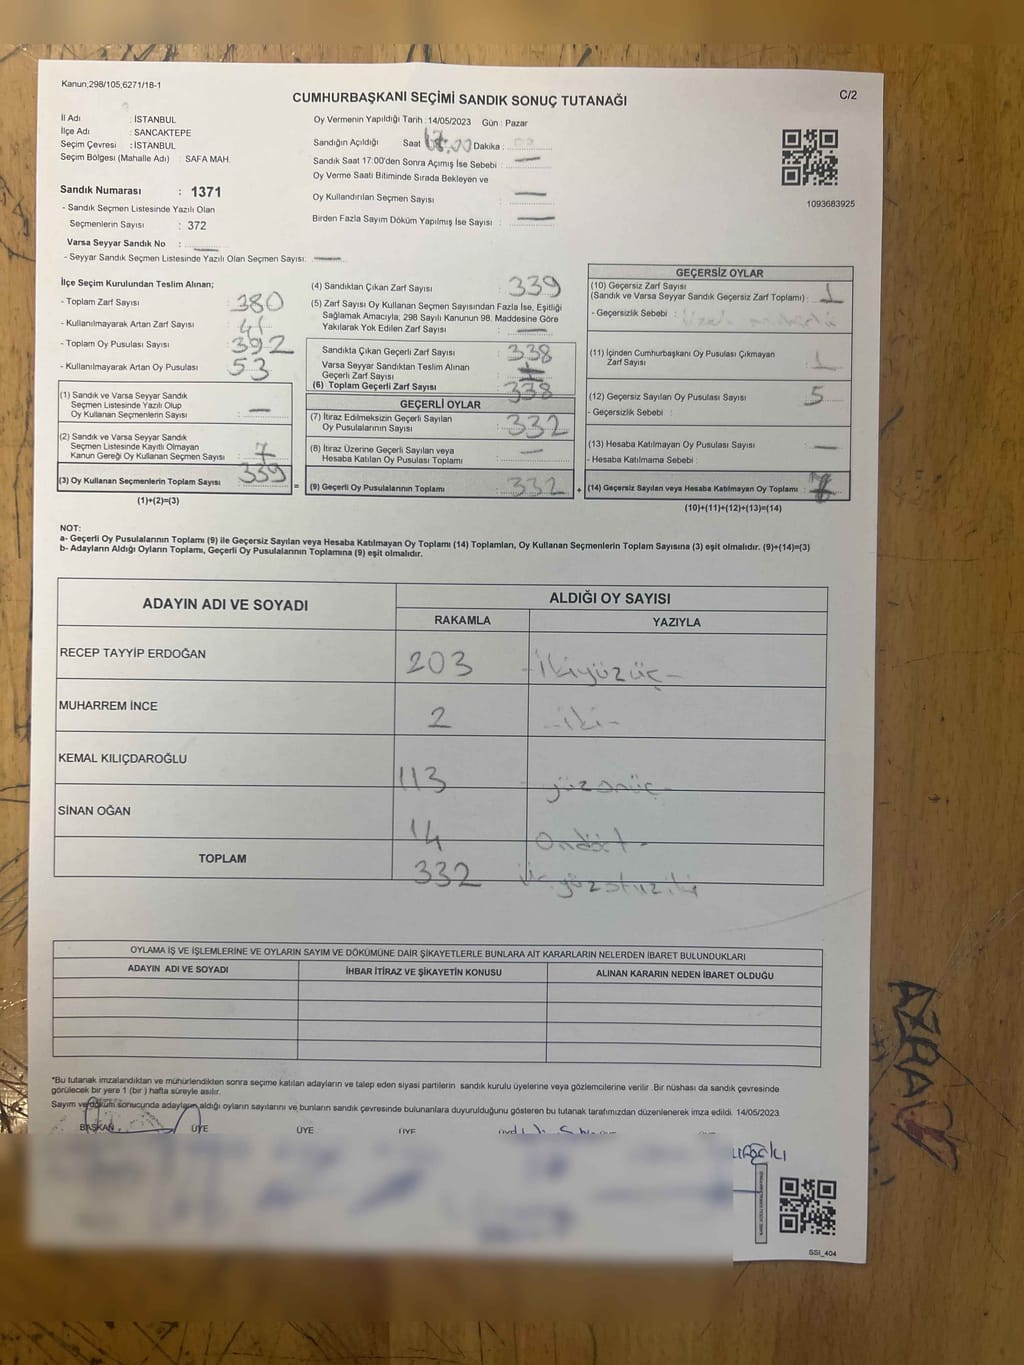 Kanun;298/105,6271/18-1
C/2
CUMHURBAŞKANI SEÇİMİ SANDIK SONUÇ TUTANAĞI
İl Adı : İSTANBUL
İlçe Adı : SANCAKTEPE
Seçim Çevresi : İSTANBUL
Seçim Bölgesi (Mahalle Adı) : SAFA MAH.
Sandık Numarası : 1371
- Sandık Seçmen Listesinde Yazılı Olan
Seçmenlerin Sayısı : 372
Varsa Seyyar Sandık No :
- Seyyar Sandık Seçmen Listesinde Yazılı Olan Seçmen Sayısı:
Oy Vermenin Yapıldığı Tarih : 14/05/2023 Gün : Pazar
Sandığın Açıldığı Saat Dakika :
Sandık Saat 17:00'den Sonra Açımış İse Sebebi : —
Oy Verme Saati Bitiminde Sırada Bekleyen ve
Oy Kullandırılan Seçmen Sayısı : —
Birden Fazla Sayım Döküm Yapılmış İse Sayısı : —
1093683925
İlçe Seçim Kurulundan Teslim Alınan;
- Toplam Zarf Sayısı : 380
- Kullanılmayarak Artan Zarf Sayısı : 41
- Toplam Oy Pusulası Sayısı : 392
- Kullanılmayarak Artan Oy Pusulası : 53
(1) Sandık ve Varsa Seyyar Sandık
Seçmen Listesinde Yazılı Olup
Oy Kullanan Seçmenlerin Sayısı : —
(2) Sandık ve Varsa Seyyar Sandık
Seçmen Listesinde Kayıtlı Olmayan
Kanun Gereği Oy Kullanan Seçmen Sayısı : 7
(3) Oy Kullanan Seçmenlerin Toplam Sayısı : 339
(1)+(2)=(3)
(4) Sandıktan Çıkan Zarf Sayısı : 339
(5) Zarf Sayısı Oy Kullanan Seçmen Sayısından Fazla İse, Eşitliği
Sağlamak Amacıyla; 298 Sayılı Kanunun 98. Maddesine Göre
Yakılarak Yok Edilen Zarf Sayısı : —
Sandıkta Çıkan Geçerli Zarf Sayısı : 338
Varsa Seyyar Sandıktan Teslim Alınan
Geçerli Zarf Sayısı :
(6) Toplam Geçerli Zarf Sayısı : 338
GEÇERLİ OYLAR
(7) İtiraz Edilmeksizin Geçerli Sayılan
Oy Pusulalarının Sayısı : 332
(8) İtiraz Üzerine Geçerli Sayılan veya
Hesaba Katılan Oy Pusulası Toplamı : —
= (9) Geçerli Oy Pusulalarının Toplamı : 332
GEÇERSİZ OYLAR
(10) Geçersiz Zarf Sayısı
(Sandık ve Varsa Seyyar Sandık Geçersiz Zarf Toplamı) : 1
- Geçersizlik Sebebi :
(11) İçinden Cumhurbaşkanı Oy Pusulası Çıkmayan
Zarf Sayısı : 1
(12) Geçersiz Sayılan Oy Pusulası Sayısı : 5
- Geçersizlik Sebebi :
(13) Hesaba Katılmayan Oy Pusulası Sayısı : —
- Hesaba Katılmama Sebebi :
+ (14) Geçersiz Sayılan veya Hesaba Katılmayan Oy Toplamı : 7
(10)+(11)+(12)+(13)=(14)
NOT:
a- Geçerli Oy Pusulalarının Toplamı (9) ile Geçersiz Sayılan veya Hesaba Katılmayan Oy Toplamı (14) Toplamları, Oy Kullanan Seçmenlerin Toplam Sayısına (3) eşit olmalıdır. (9)+(14)=(3)
b- Adayların Aldığı Oyların Toplamı, Geçerli Oy Pusulalarının Toplamına (9) eşit olmalıdır.
ADAYIN ADI VE SOYADI
ALDIĞI OY SAYISI
RAKAMLA YAZIYLA
RECEP TAYYİP ERDOĞAN 203 -İkiyüzüç-
MUHARREM İNCE 2 -iki-
KEMAL KILIÇDAROĞLU 113 yüzonüç-
SİNAN OĞAN 14 Ondört-
TOPLAM 332 üçyüzotuziki
OYLAMA İŞ VE İŞLEMLERİNE VE OYLARIN SAYIM VE DÖKÜMÜNE DAİR ŞİKAYETLERLE BUNLARA AİT KARARLARIN NELERDEN İBARET BULUNDUKLARI
ADAYIN ADI VE SOYADI İHBAR İTİRAZ VE ŞİKAYETİN KONUSU ALINAN KARARIN NEDEN İBARET OLDUĞU
*Bu tutanak imzalandıktan ve mühürlendikten sonra seçime katılan adayların ve talep eden siyasi partilerin sandık kurulu üyelerine veya gözlemcilerine verilir .Bir nüshası da sandık çevresinde
görülecek bir yere 1 (bir ) hafta süreyle asılır.
Sayım ve döküm sonucunda adayların aldığı oyların sayılarını ve bunların sandık çevresinde bulunanlara duyurulduğunu gösteren bu tutanak tarafımızdan düzenlenerek imza edildi. 14/05/2023
BAŞKAN ÜYE ÜYE ÜYE
SSI_404